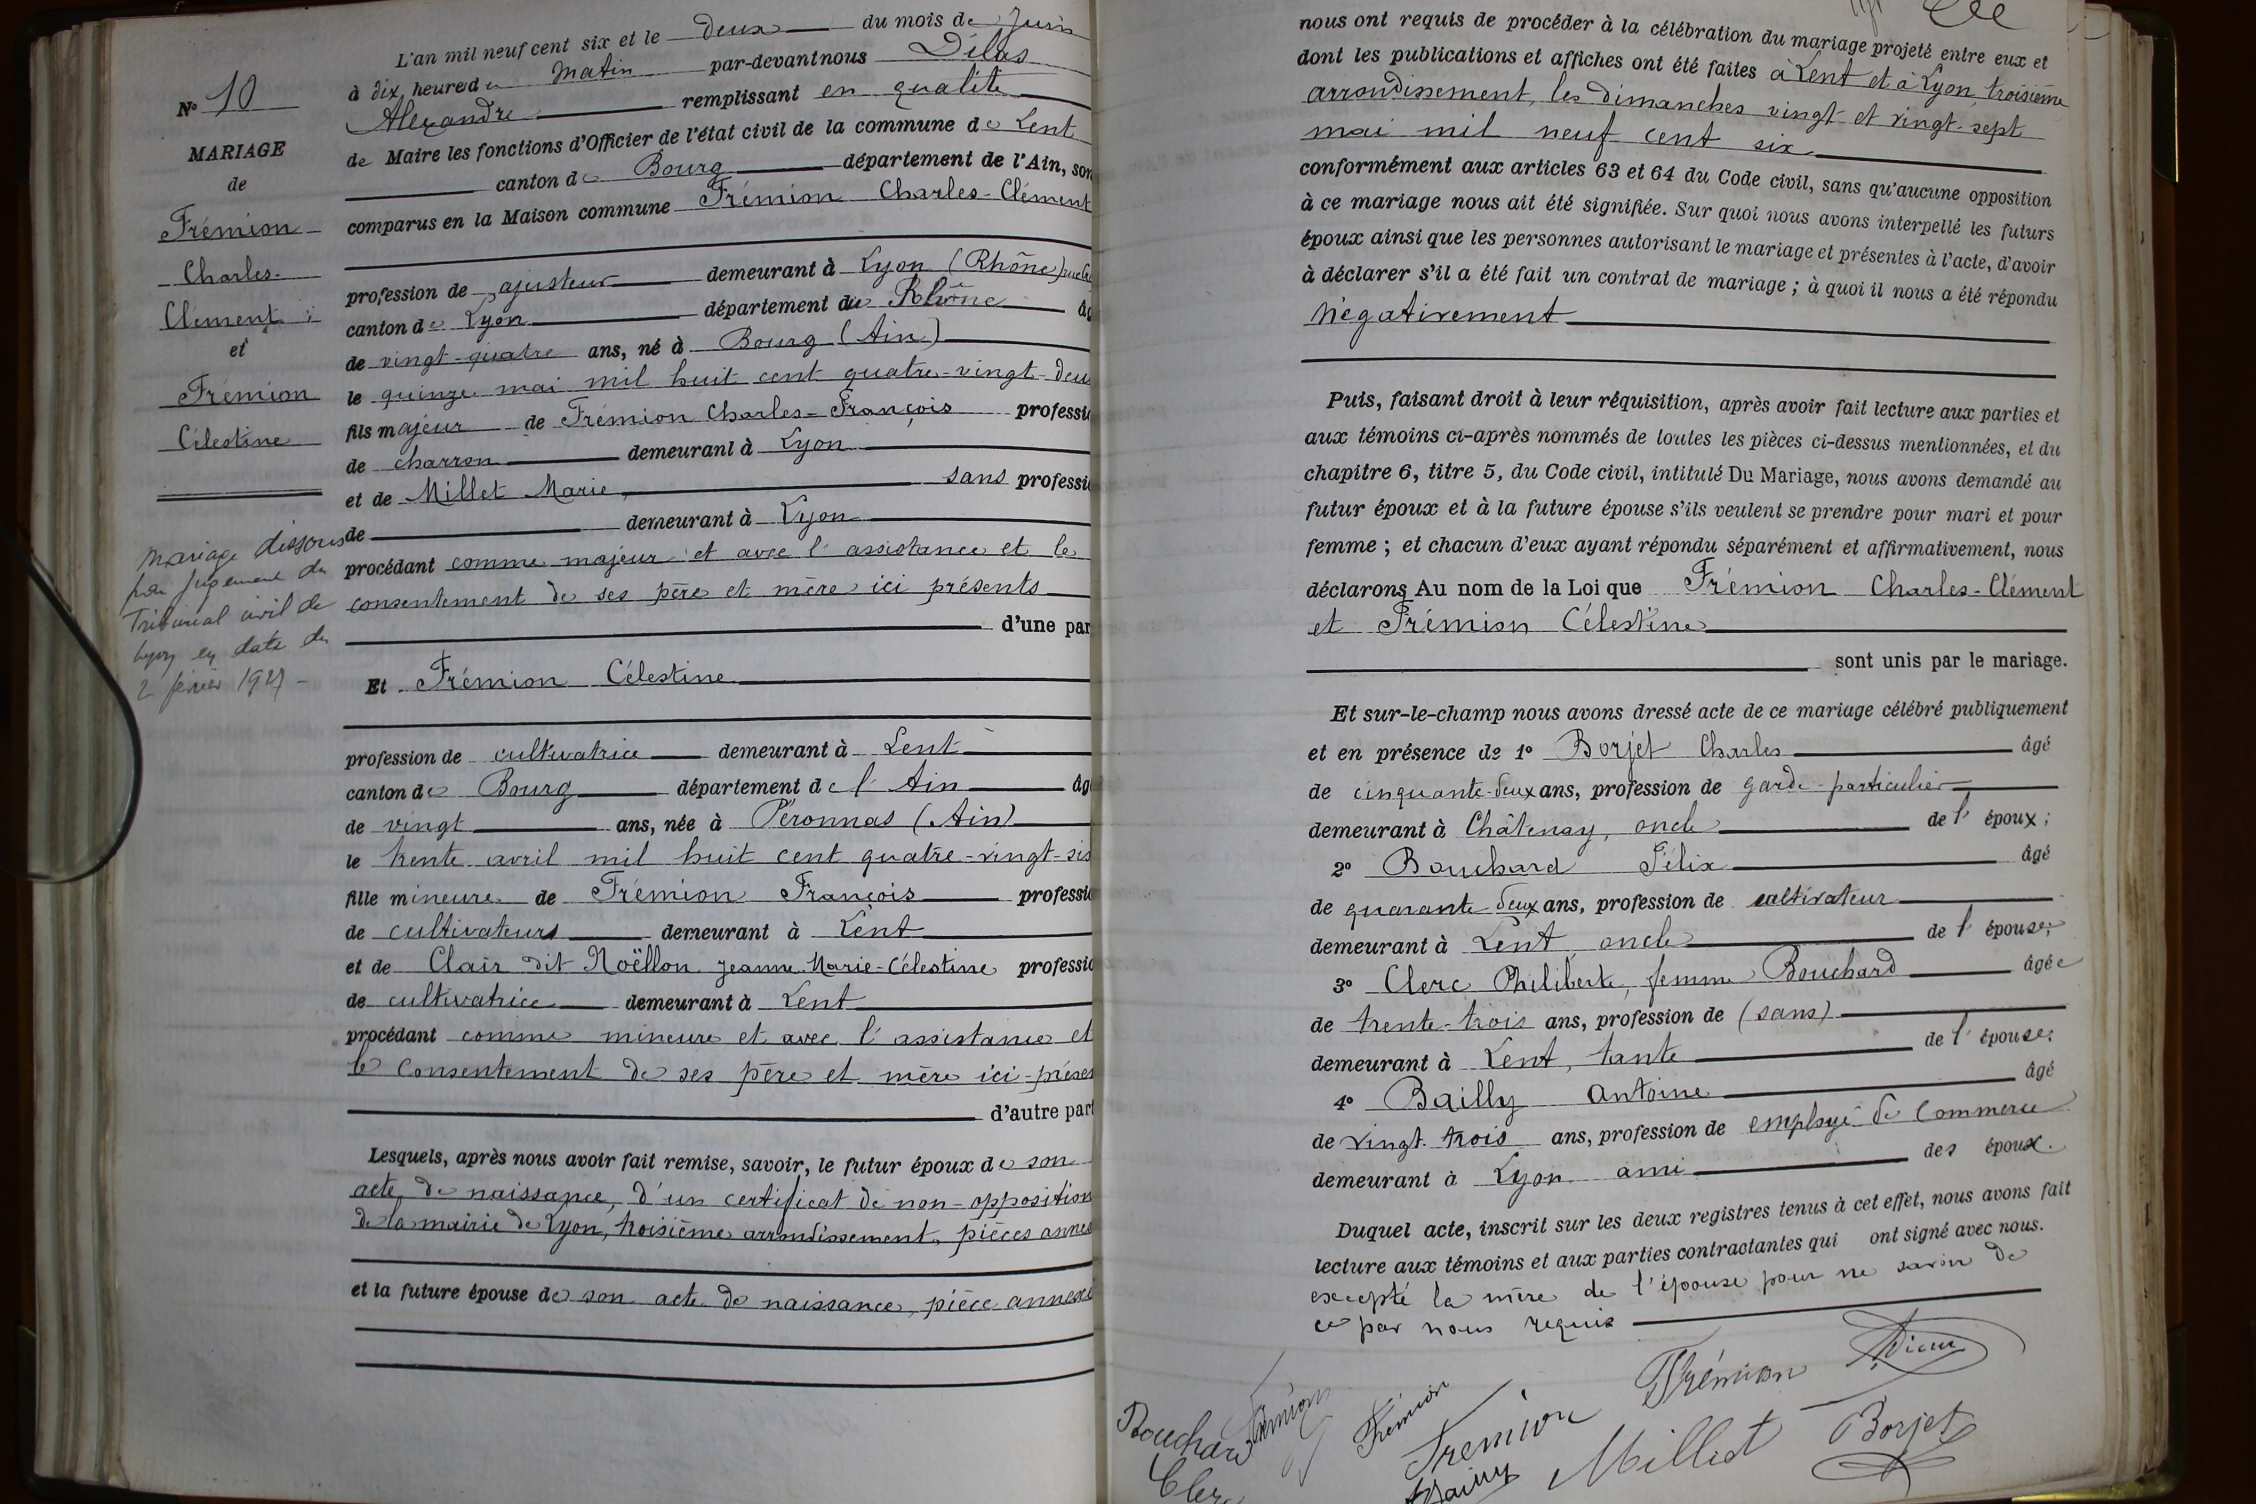 N° 10
MARIAGE
de
Frémion
Charles-
Clément
et
Frémion
Célestine
Mariage dissous
par jugement du
Tribunal civil de
Lyon en date du
2 février
L'an mil neuf cent six et le deux du mois de Juin
à dix heures du matin par-devant nous
Alexandre remplissant en qualité
de Maire les fonctions d'Officier de l'état civil de la commune de Lent
canton de Bourg département de l'Ain, son
comparus en la Maison commune Frémion Charles-Clément
profession de ajusteur demeurant à Lyon (Rhône)
canton de Lyon département du Rhône âg
de vingt-quatre ans, né à Bourg (Ain)
le quinze mai mil huit cent quatre-vingt-deu
fils majeur de Frémion Charles-François professi
de charron demeurant à Lyon
et de Millet Marie, sans professi
de demeurant à Lyon
procédant comme majeur et avec l'assistance et le
consentement de ses père et mère ici présents
d'une par
Et Frémion Célestine
profession de cultivatrice demeurant à Lent
canton de Bourg département de l'Ain âg
de vingt ans, née à Péronnas (Ain)
le trente avril mil huit cent quatre-vingt-six
fille mineure de Frémion François professi
de cultivateurs demeurant à Lent
et de Clair dit Noëllon Jeanne-Marie-Célestine professi
de cultivatrice demeurant à Lent
procédant comme mineure et avec l'assistance et
le consentement de ses père et mère ici-prése
d'autre part
Lesquels, après nous avoir fait remise, savoir, le futur époux de son
acte de naissance, d'un certificat de non-opposition
de la mairie de Lyon, troisième arrondissement, pièces anne
et la future épouse de son acte de naissance, pièce annexé
nous ont requis de procéder à la célébration du mariage projeté entre eux et
dont les publications et affiches ont été faites à Lent et à Lyon, troisième
arrondissement, les dimanches vingt et vingt-sept
mai mil neuf cent six
conformément aux articles 63 et 64 du Code civil, sans qu'aucune opposition
à ce mariage nous ait été signifiée. Sur quoi nous avons interpellé les futurs
époux ainsi que les personnes autorisant le mariage et présentes à l'acte, d'avoir
à déclarer s'il a été fait un contrat de mariage ; à quoi il nous a été répondu
négativement
Puis, faisant droit à leur réquisition, après avoir fait lecture aux parties et
aux témoins ci-après nommés de toutes les pièces ci-dessus mentionnées, et du
chapitre 6, titre 5, du Code civil, intitulé Du Mariage, nous avons demandé au
futur époux et à la future épouse s'ils veulent se prendre pour mari et pour
femme ; et chacun d'eux ayant répondu séparément et affirmativement, nous
déclarons Au nom de la Loi que Frémion Charles-Clément
et Frémion Célestine
sont unis par le mariage.
Et sur-le-champ nous avons dressé acte de ce mariage célébré publiquement
et en présence de 1° Borjet Charles âgé
de cinquante-deux ans, profession de garde-particulier
demeurant à Châtenay, oncle de l'époux ;
2° Bouchard Félix âgé
de quarante-deux ans, profession de cultivateur
demeurant à Lent, oncle de l'épouse ;
3° Clerc Philiberte, femme Bouchard âgée
de trente-trois ans, profession de (sans)
demeurant à Lent, tante de l'épouse ;
4° Bailly Antoine âgé
de vingt-trois ans, profession de employé de commerce
demeurant à Lyon ami des époux.
Duquel acte, inscrit sur les deux registres tenus à cet effet, nous avons fait
lecture aux témoins et aux parties contractantes qui ont signé avec nous.
excepté la mère de l'épouse pour ne savoir de
ce par nous requis
Frémion
Bouchard Frémion Frémion Frémion Borjet
Clerc Bailly Millet